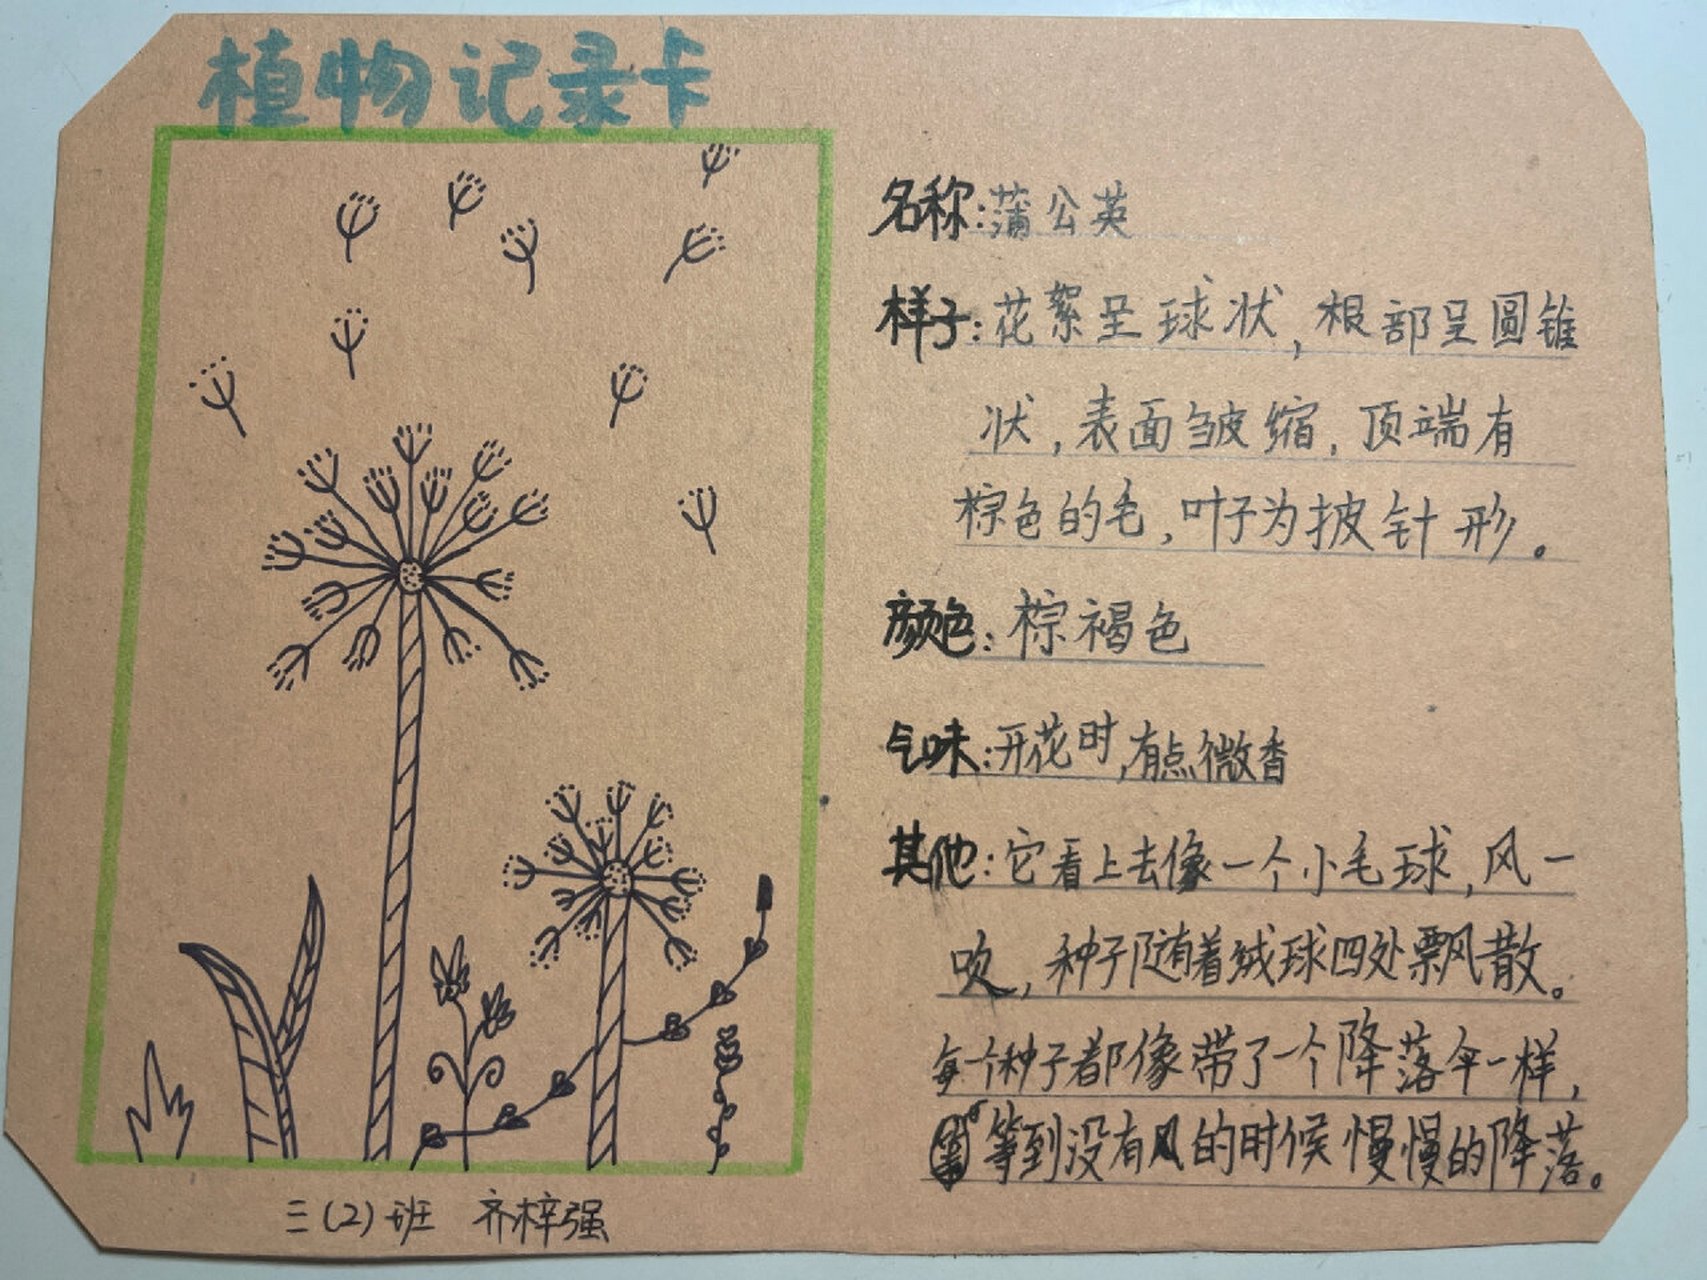 植物记录卡
名称:蒲公英
样子:花絮呈球状,根部呈圆锥
状,表面皱缩,顶端有
棕色的毛,叶子为披针形。
颜色:棕褐色
气味:开花时,有点微香
其他:它看上去像一个小毛球,风一
吹,种子随着绒球四处飘散。
每个种子都像带了一个降落伞一样,
等到没有风的时候慢慢的降落。
三(2)班 齐梓强